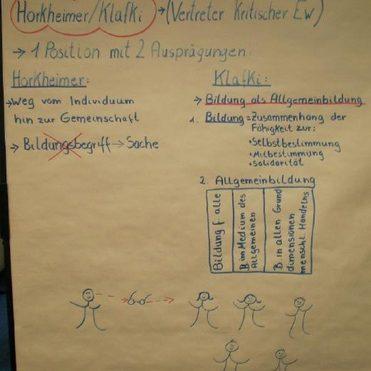 Horkheimer/Klafki → (Vertreter Kritischer Ew)
→ 1 Position mit 2 Ausprägungen
Horkheimer:
→ Weg vom Individuum
hin zur Gemeinschaft
→ Bildungsbegriff → Sache
Klafki:
→ Bildung als Allgemeinbildung
1. Bildung = Zusammenhang der
Fähigkeit zur:
• Selbstbestimmung
• Mitbestimmung
• Solidarität
2. Allgemeinbildung
Bildung f alle
B. im Medium des
Allgemeinen
B. in allen Grund
dimensionen
menschl. Handelns